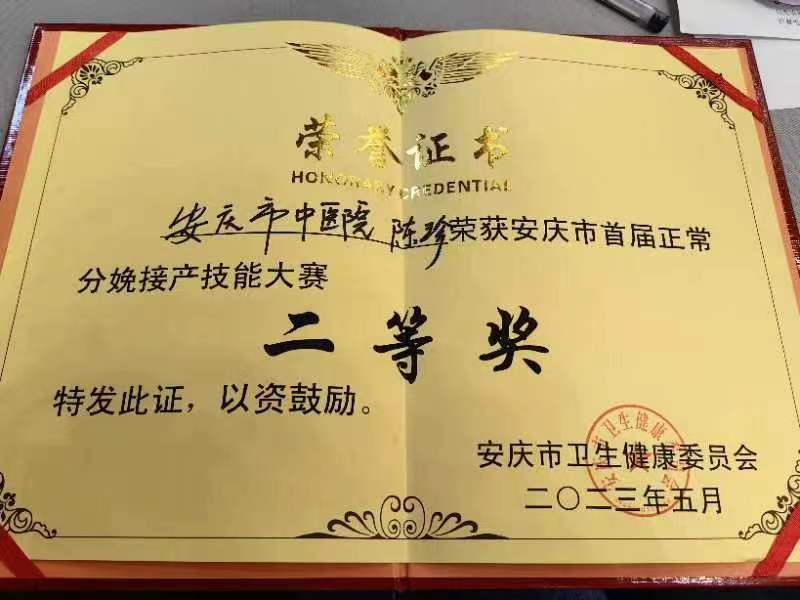 荣誉证书
HONORARY CREDENTIAL
安庆市中医院 陈珍荣获安庆市首届正常
分娩接产技能大赛
二等奖
特发此证，以资鼓励。
安庆市卫生健康委员会
二〇二三年五月
安庆市卫生健康委员会